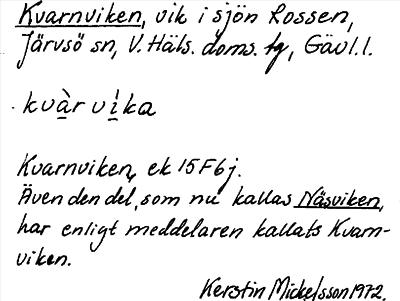 Kvarnviken, vik i sjön Lossen,
Järvsö sn, V. Häls. doms. tg, Gävl. l.
kvàrvi̇̀ka
Kvarnviken, ek 15F6j.
Även den del, som nu kallas Näsviken,
har enligt meddelaren kallats Kvarn-
viken.
Kerstin Mickelsson 1972.